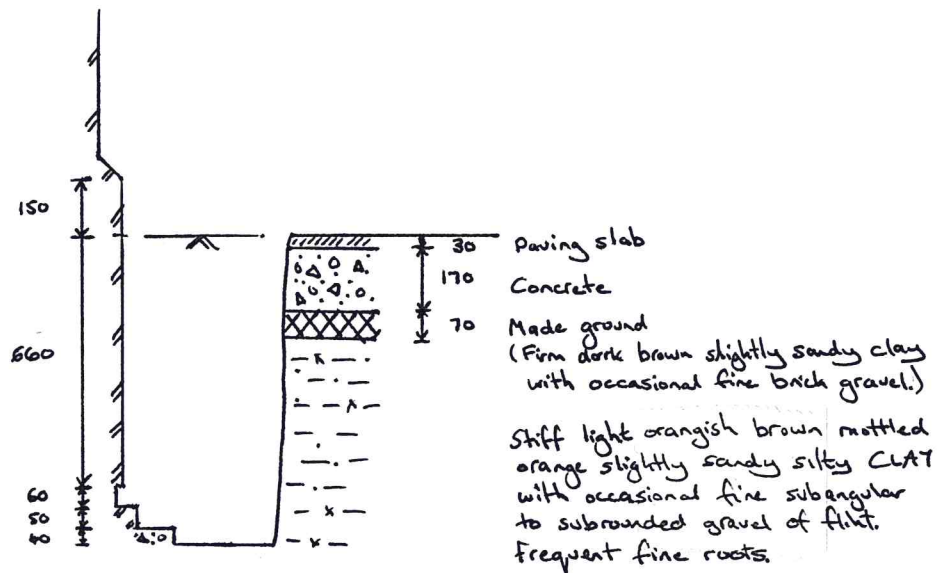 150
660
60
50
40
30
170
70
Paving slab
Concrete
Made ground
(Firm dark brown slightly sandy clay
with occasional fine brick gravel.)
Stiff light orangish brown mottled
orange slightly sandy silty CLAY
with occasional fine subangular
to subrounded gravel of flint.
Frequent fine roots.